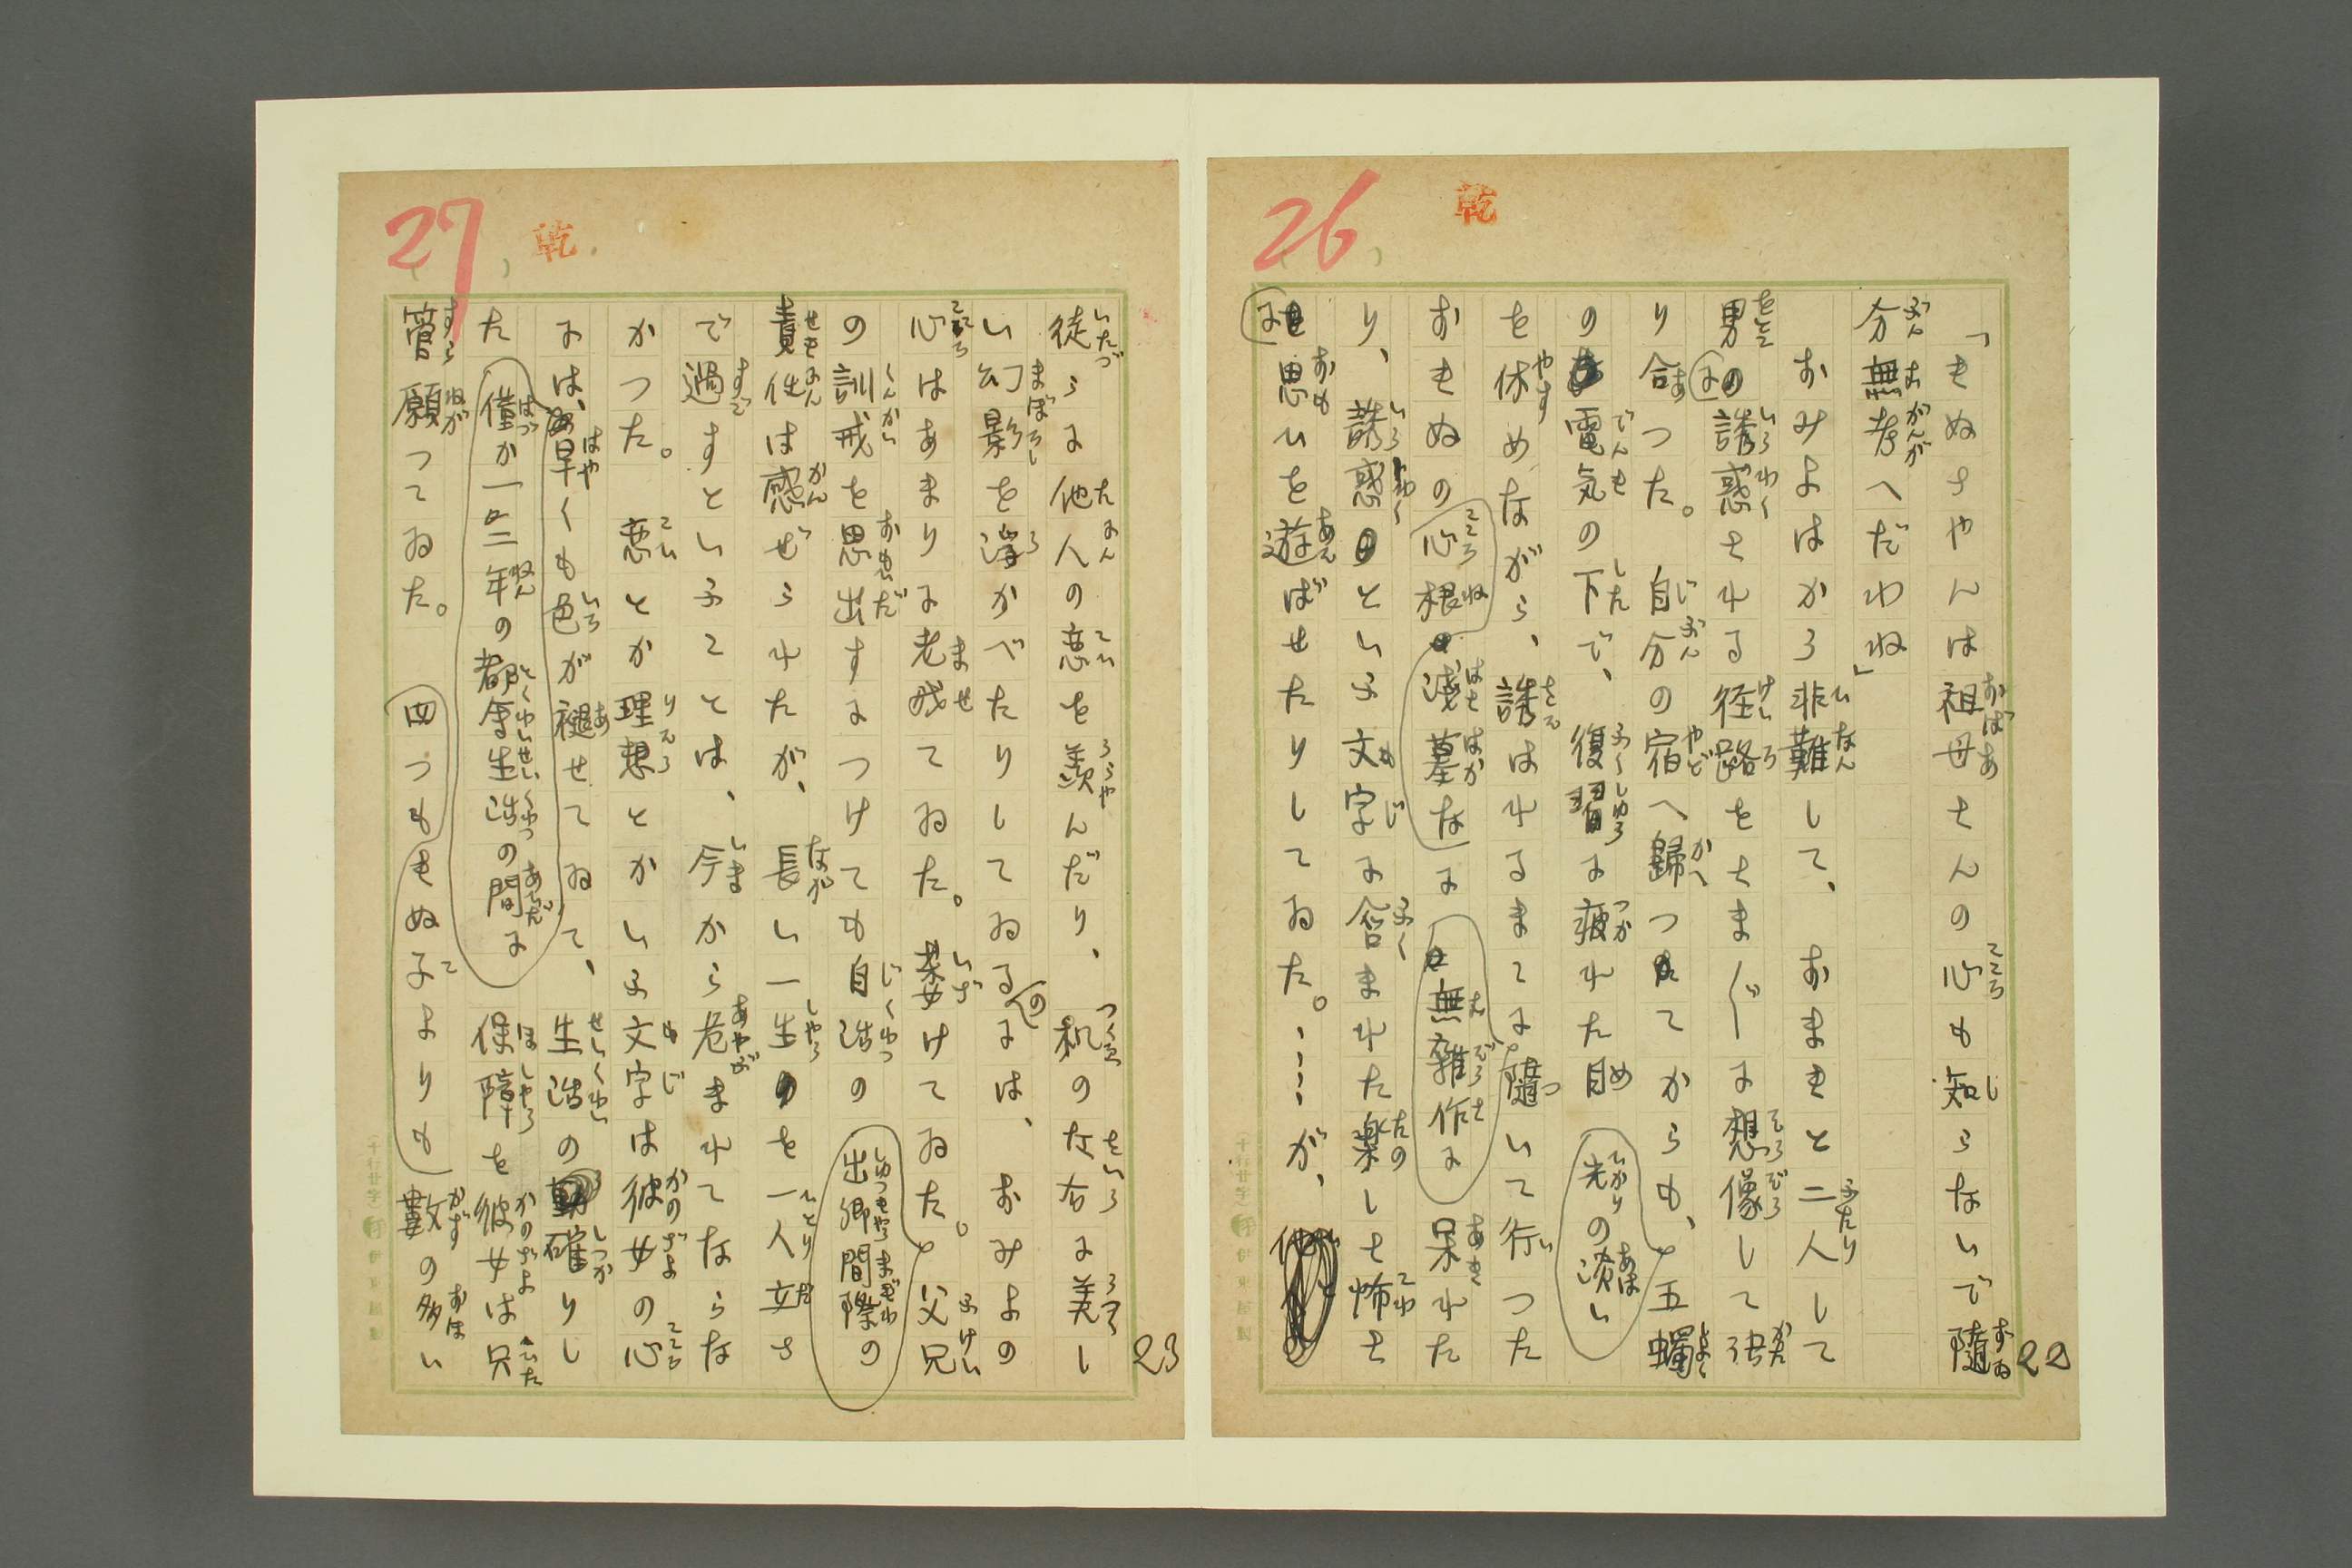 26
乾
22
「きぬさやんは祖母さんの心も知らないで隨
分無考へだわね」
おみよはかう非難して、おまきと二人して
男に誘惑される径路をさま／″＼に想像して語
り合つた。自分の宿へ歸つてからも、五蠋
の電気の下で、光の淡い復習に疲れた目
を休めながら、誘はれるまゝに隨いて行つた
おきぬの心根の淺墓なに無雜作に呆れた
り、誘惑といふ文字に含まれた楽しさ怖さ
に思ひを遊ばせたりしてゐた。……が、
27
乾
23
徒らに他人の恋を羨んだり、机の左右に美し
い幻影を浮かべたりしてゐるのには、おみよの
心はあまりに老成てゐた。萎けてゐた。父兄
の訓戒を思出すにつけても自活の出郷間際の
責任は感ぜられたが、長い一生を一人立さ
で過すといふことは、今から危まれてならな
かつた。恋とか理想とかいふ文字は彼女の心
には、早くも色が褪せてゐて、生活の確りし
た僅か一二年の都會生活の間に保障を彼女は只
管願つてゐた。四つもきぬ子よりも數の多い